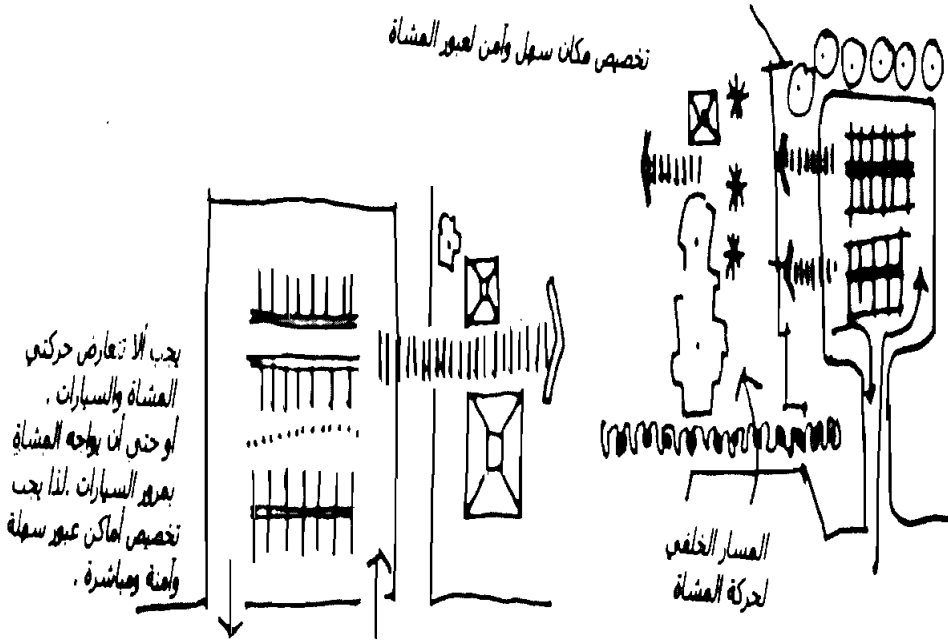 تخصيص مكان سهل وآمن لعبور المشاة
يجب ألا تتعارض حركتي
المشاة والسيارات .
أو حتى أن يواجه المشاة
بمرور السيارات .لذا يجب
تخصيص أماكن عبور سهلة
وآمنة ومباشرة .
المسار الخلفي
لحركة المشاة